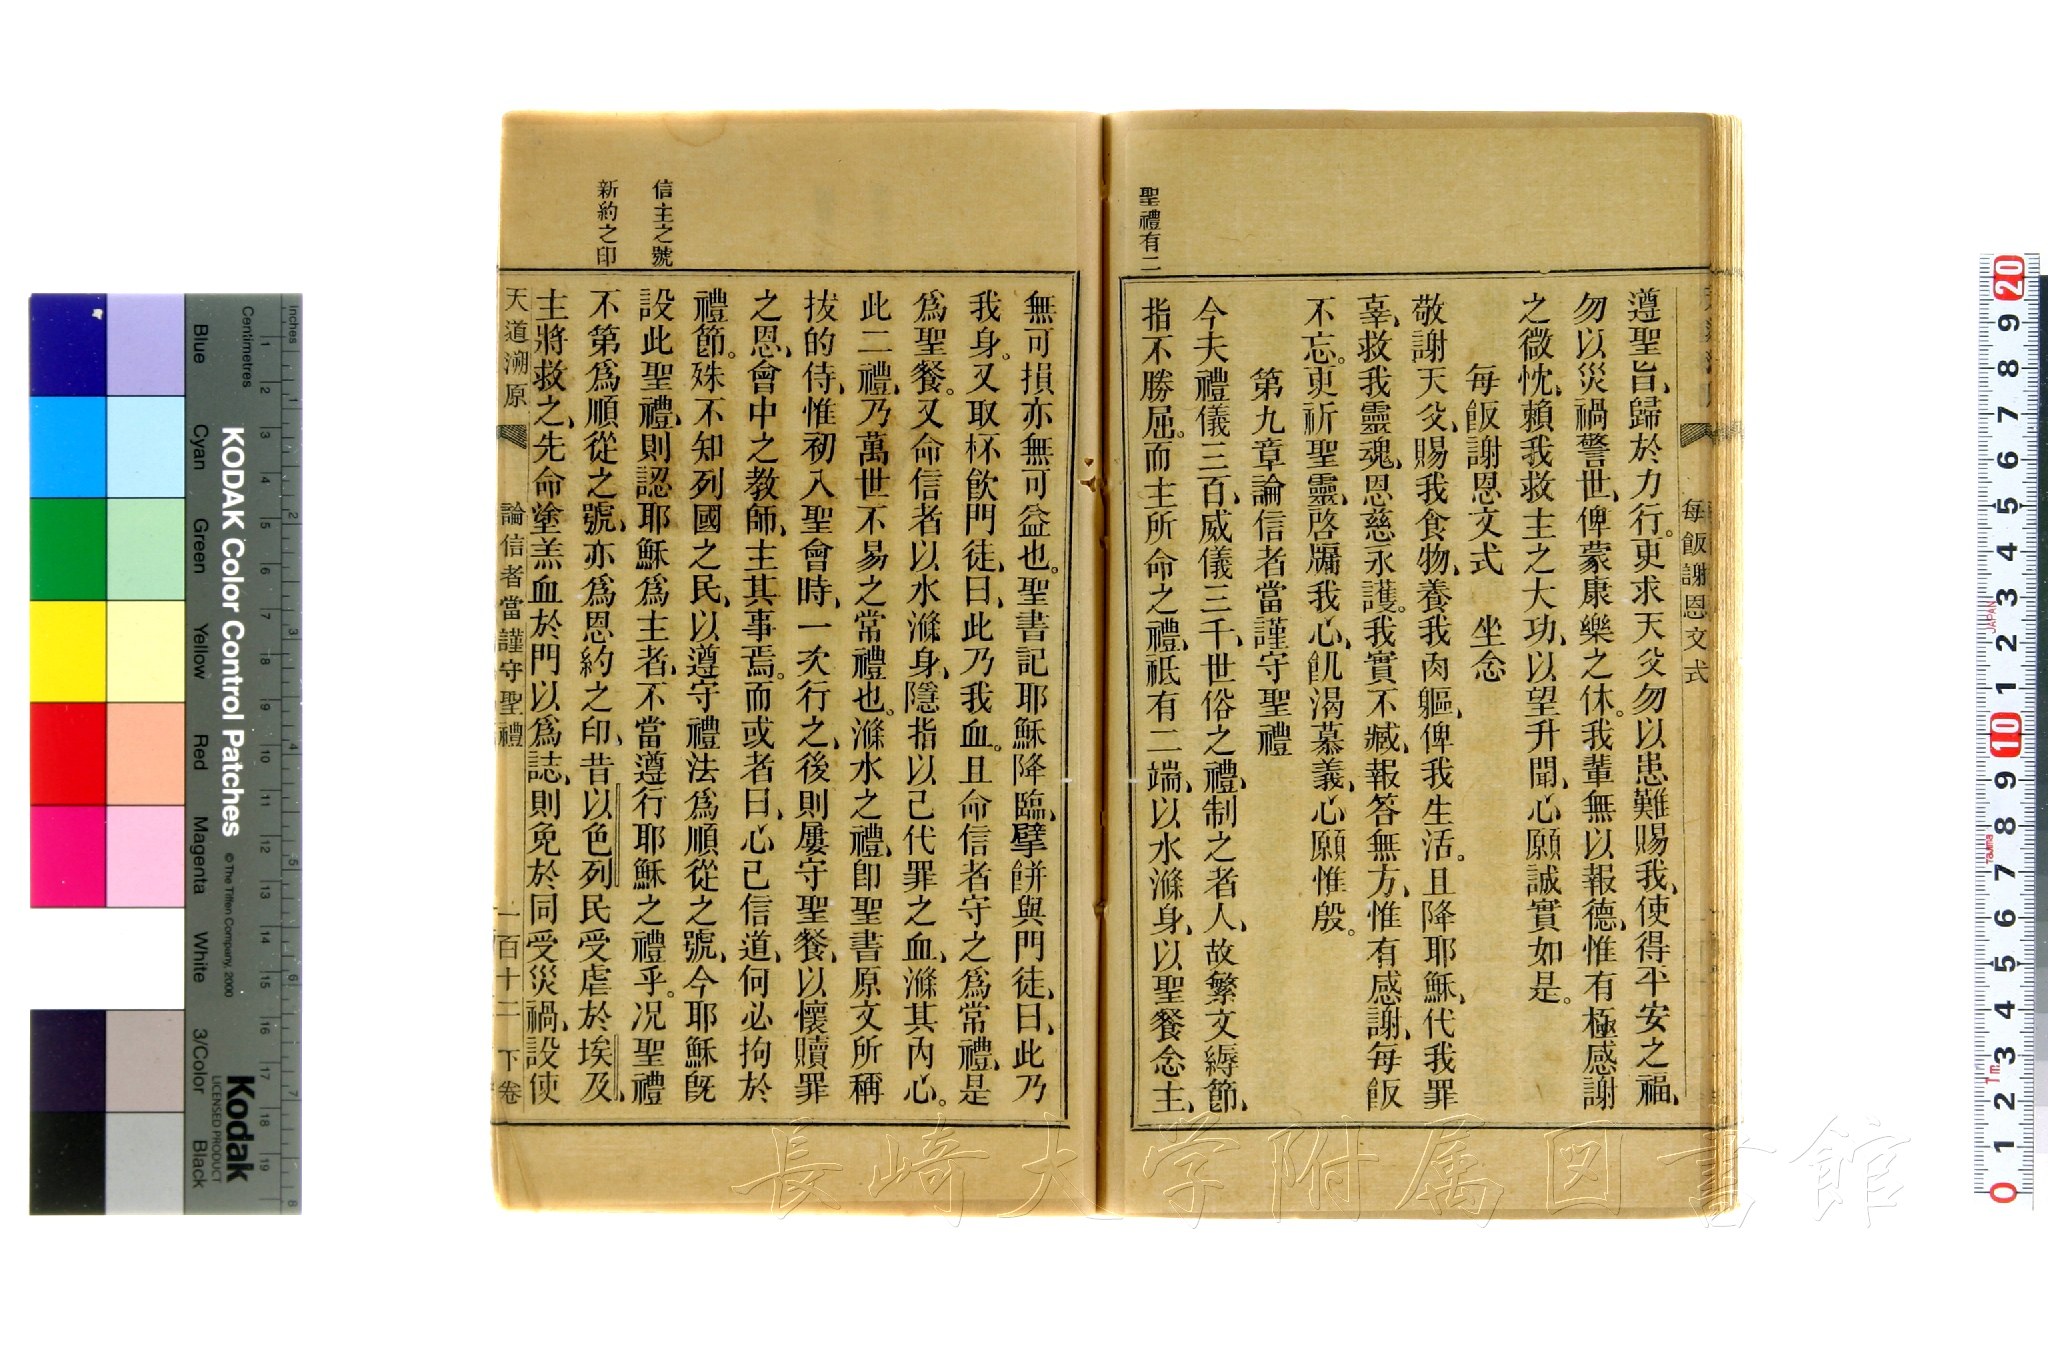 每飯謝恩文式
遵聖旨、歸於力行。更求天父勿以患難賜我、使得平安之福、
勿以災禍警世、俾蒙康樂之休。我輩無以報德、惟有極感謝
之微忱、賴我救主之大功、以望升聞、心願誠實如是。
每飯謝恩文式　坐念
敬謝天父、賜我食物、養我肉軀、俾我生活。且降耶穌、代我罪
辜、救我靈魂、恩慈永護。我實不臧、報答無方、惟有感謝、每飯
不忘。更祈聖靈、啓牖我心、飢渴慕義、心願惟殷。
第九章論信者當謹守聖禮
今夫禮儀三百、威儀三千、世俗之禮、制之者人、故繁文縟節、
聖禮有二
指不勝屈。而主所命之禮、祗有二端、以水滌身、以聖餐念主、
無可損亦無可益也。聖書記耶穌降臨、擘餅與門徒、曰、此乃
我身。又取杯飲門徒、曰、此乃我血。且命信者守之爲常禮、是
爲聖餐。又命信者以水滌身、隱指以己代罪之血、滌其內心。
此二禮、乃萬世不易之常禮也。滌水之禮、卽聖書原文所稱
拔的侍、惟初入聖會時、一次行之、後則屢守聖餐、以懷贖罪
之恩、會中之教師、主其事焉。而或者曰、心已信道、何必拘於
禮節。殊不知列國之民、以遵守禮法爲順從之號、今耶穌旣
信主之號
設此聖禮、則認耶穌爲主者、不當遵行耶穌之禮乎。況聖禮
新約之印
不第爲順從之號、亦爲恩約之印、昔以色列民受虐於埃及、
主將救之、先命塗羔血於門以爲誌、則免於同受災禍、設使
天道溯原　論信者當謹守聖禮　一百十二　下卷
KODAK Color Control Patches
© The Tiffen Company, 2000
Kodak
LICENSED PRODUCT
Inches
Centimetres
Blue
Cyan
Green
Yellow
Red
Magenta
White
3/Color
Black
長崎大学附属図書館
JAPAN
Tajima
7m